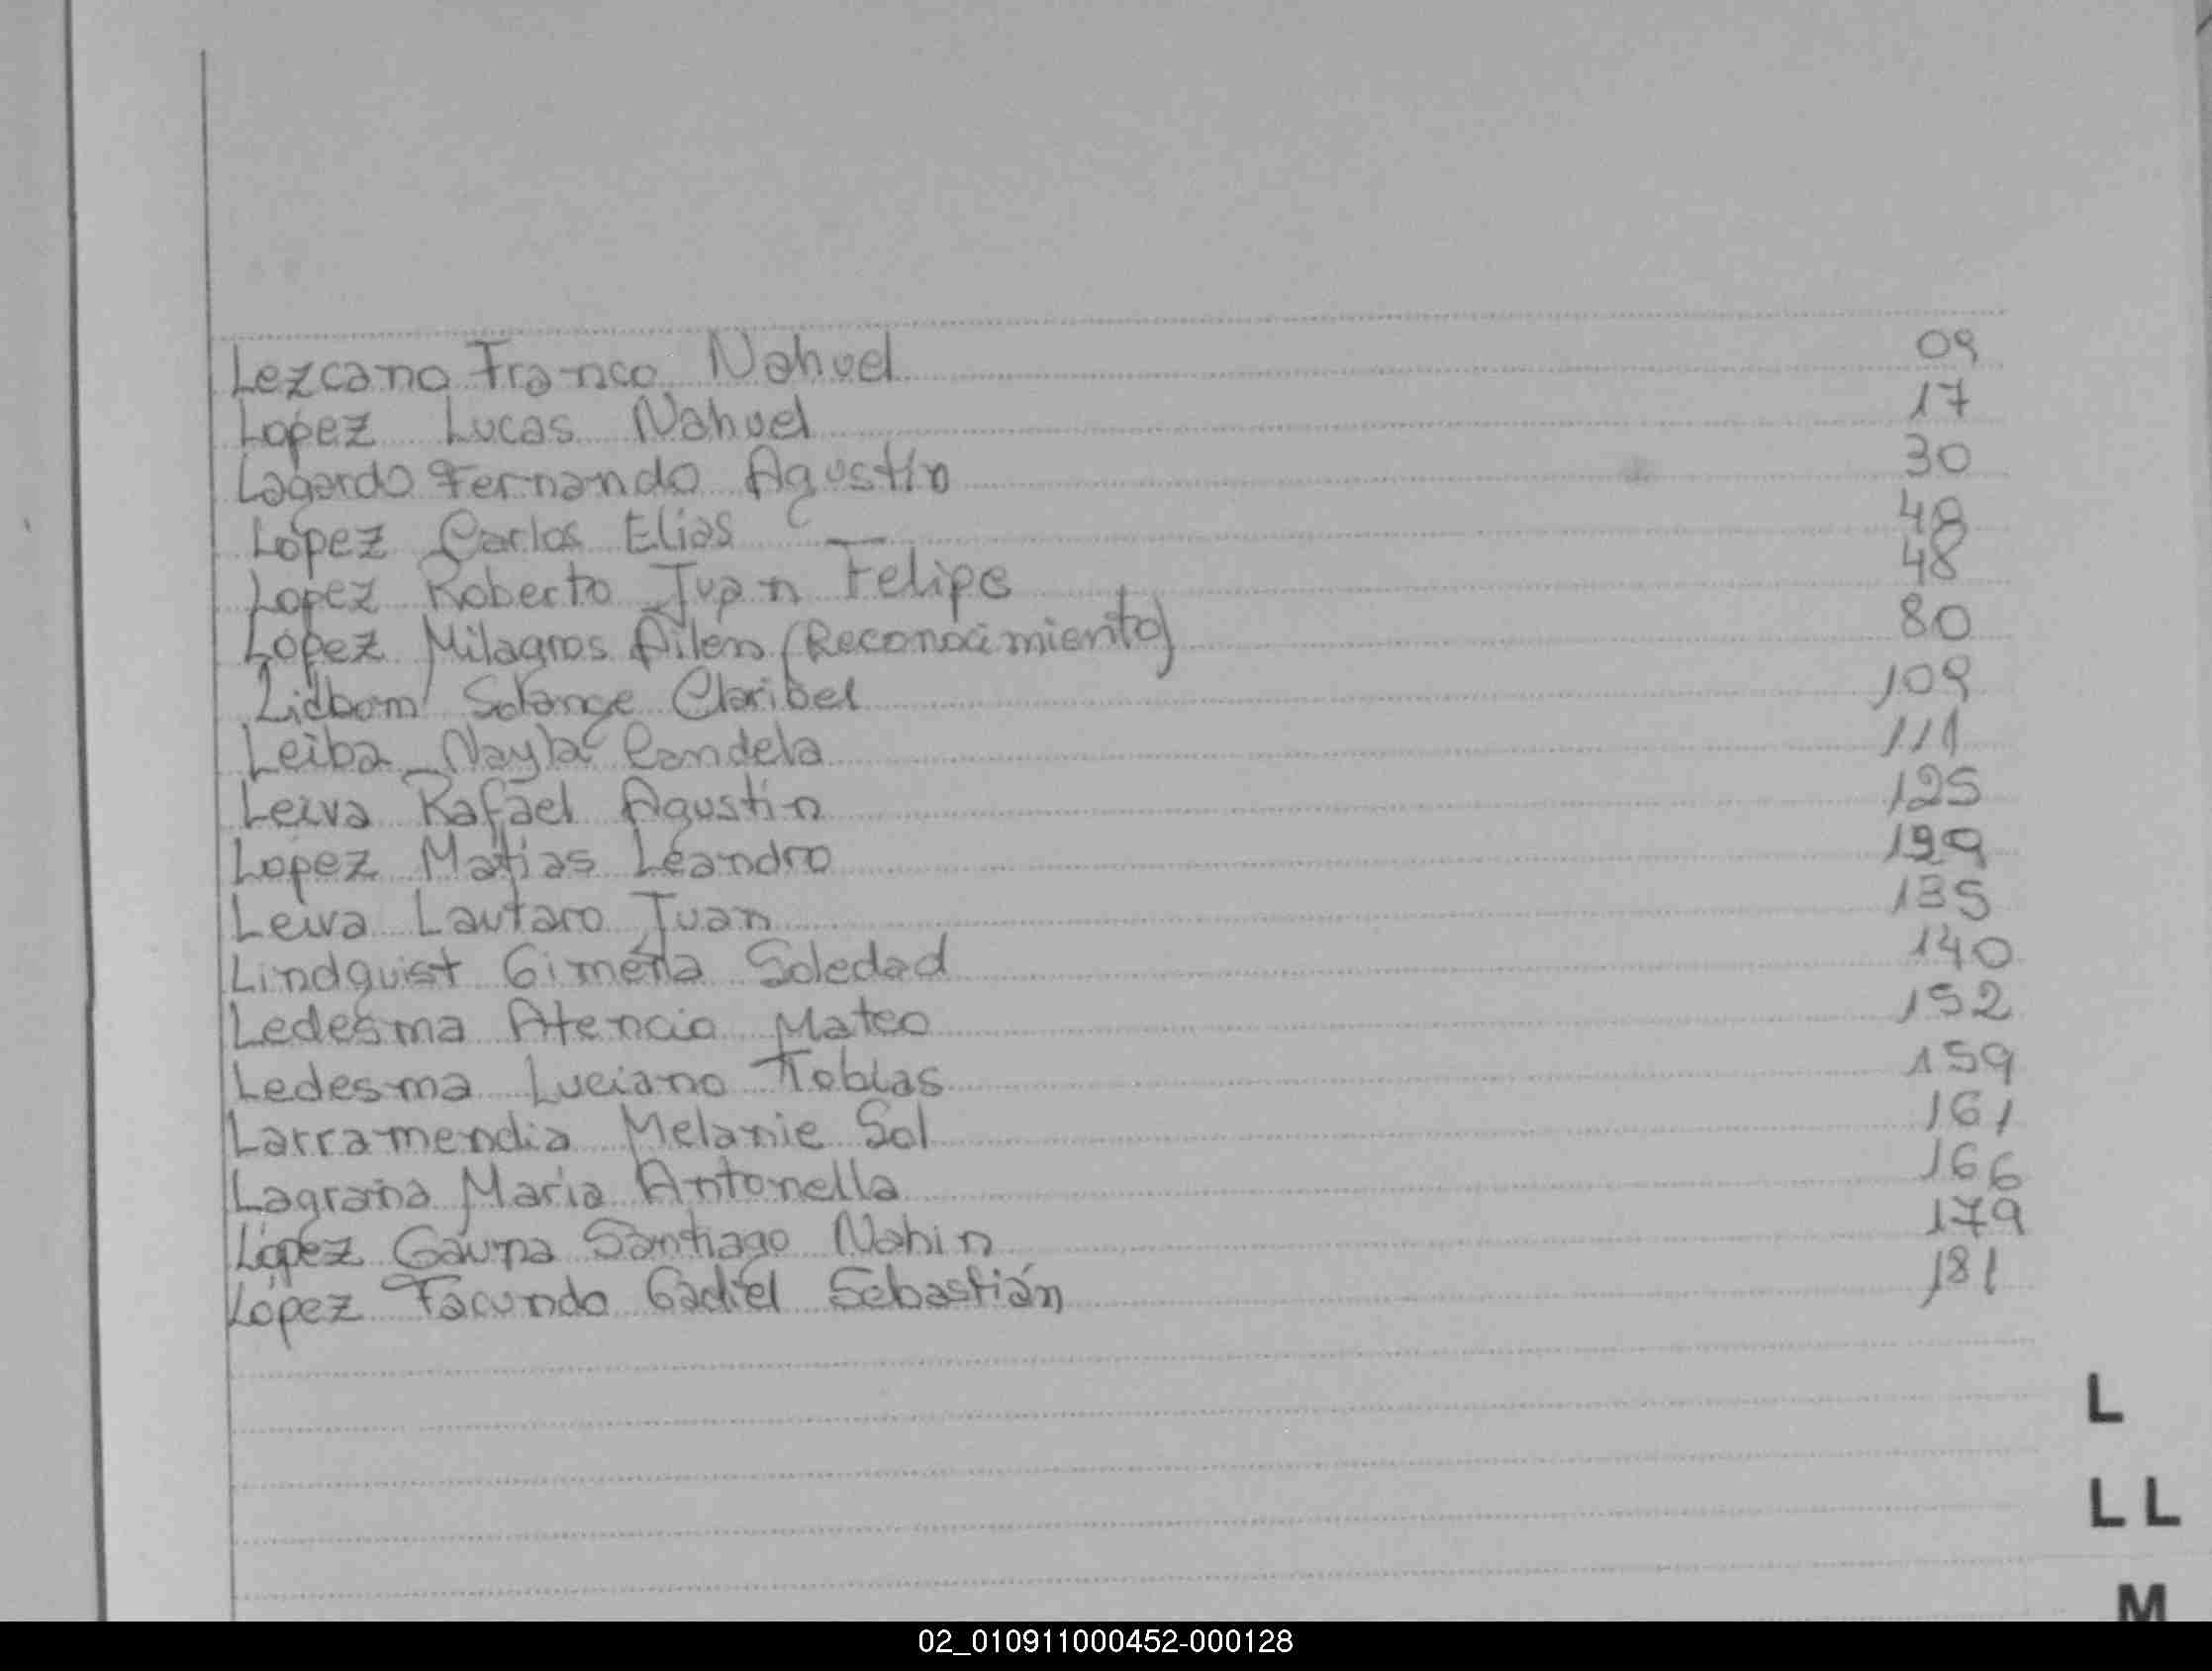 Lezcano Franco Nahuel 09
Lopez Lucas Nahuel 17
Lagardo Fernando Agustín 30
Lopez Carlos Elias 48
Lopez Roberto Juan Felipe 48
López Milagros Ailen (Reconocimiento) 80
Lidbom Solange Claribel 109
Leiba Nayla Candela 111
Leiva Rafael Agustín 125
Lopez Matias Leandro 129
Leiva Lautaro Juan 135
Lindquist Gimena Soledad 140
Ledesma Atencio Mateo 152
Ledesma Luciano Tobias 159
Larramendia Melanie Sol 161
Lagraña Maria Antonella 166
López Gauna Santiago Nahin 179
López Facundo Gadiel Sebastián 181
L
LL
M
02_010911000452-000128